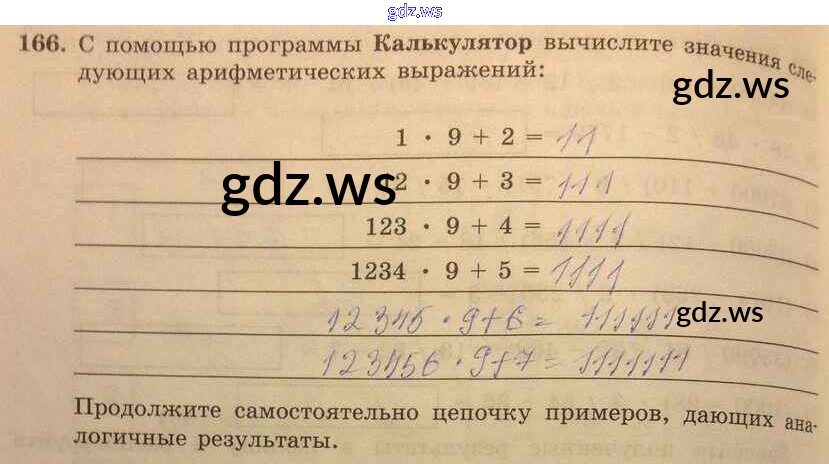 gdz.ws
166. С помощью программы Калькулятор вычислите значения сле-
дующих арифметических выражений:
gdz.ws
1 · 9 + 2 = 11
gdz.ws
12 · 9 + 3 = 111
123 · 9 + 4 = 1111
1234 · 9 + 5 = 1111
12345 · 9+6 = 111111
gdz.ws
123456 · 9+7 = 1111111
Продолжите самостоятельно цепочку примеров, дающих ана-
логичные результаты.